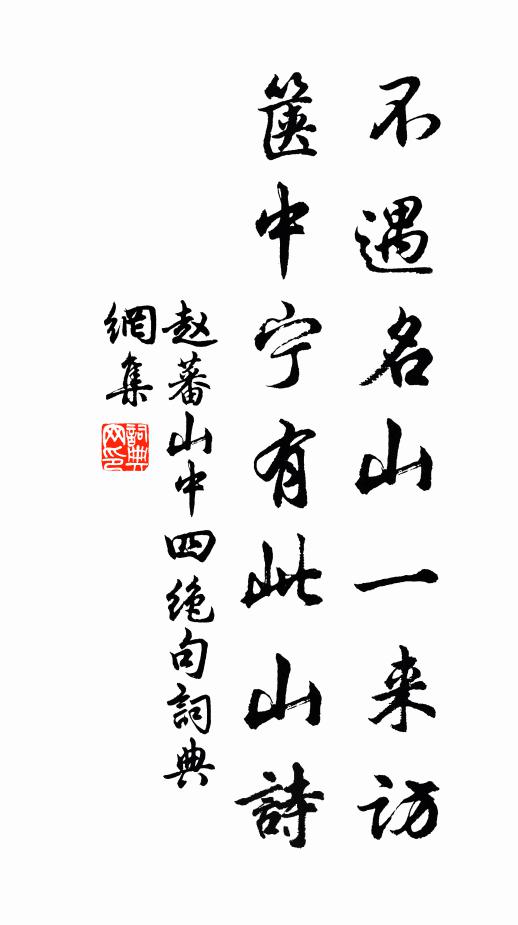 不遇名山一来访
箧中宁有此山詩
赵蕃山中四绝句詞典
網集
詞典
网印